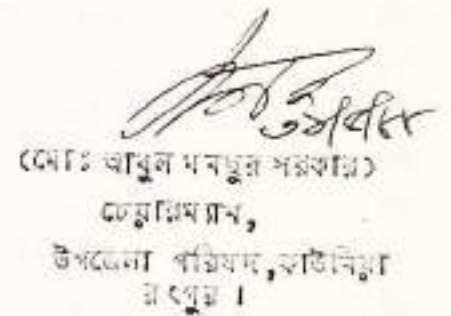 (মোঃ আবুল মনছুর সরকার)
চেয়ারম্যান,
উপজেলা পরিষদ,কাউনিয়া
রংপুর ।